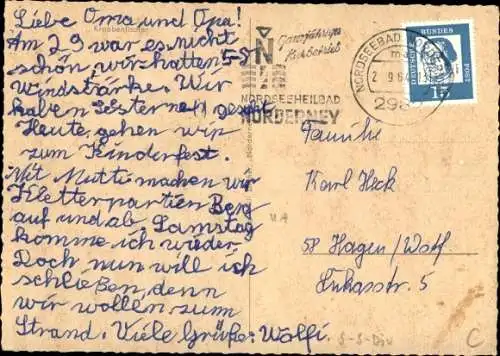 Liebe Oma und Opa!
Am 2.9 war es nicht
schön, wir hatten 5-8
Windstärke. Wir
haben Seesterne
Heute gehen wir
zum Kinderfest.
Mit Mutti machen wir
Kletterpartien Berg
auf und ab. Samstag
komme ich wieder.
Doch nun will ich
schließen, denn
wir wollen zum
Strand. Viele Grüße: Wolfi.
Ganzjähriger
Kurbetrieb
NORDSEEHEILBAD
NORDERNEY
NORDSEEBAD
298
DEUTSCHE BUNDESPOST
15
Familie
Karl Heck
58 Hagen/Wstf.
5